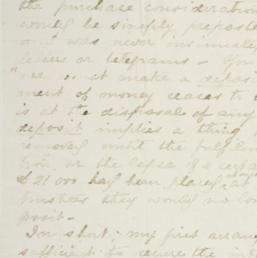 the purchase consideration
would be simply preposte
and was never insinuated
letters or telegrams - You
not make a
ment of money ceases to
is at the disposal of any
deposit implies a thing
removed until the
tion or the lapse of a certa
£21 000 had been placed at
trustees they would no lon
posit -
In short, my first arran
sufficient to secure the in